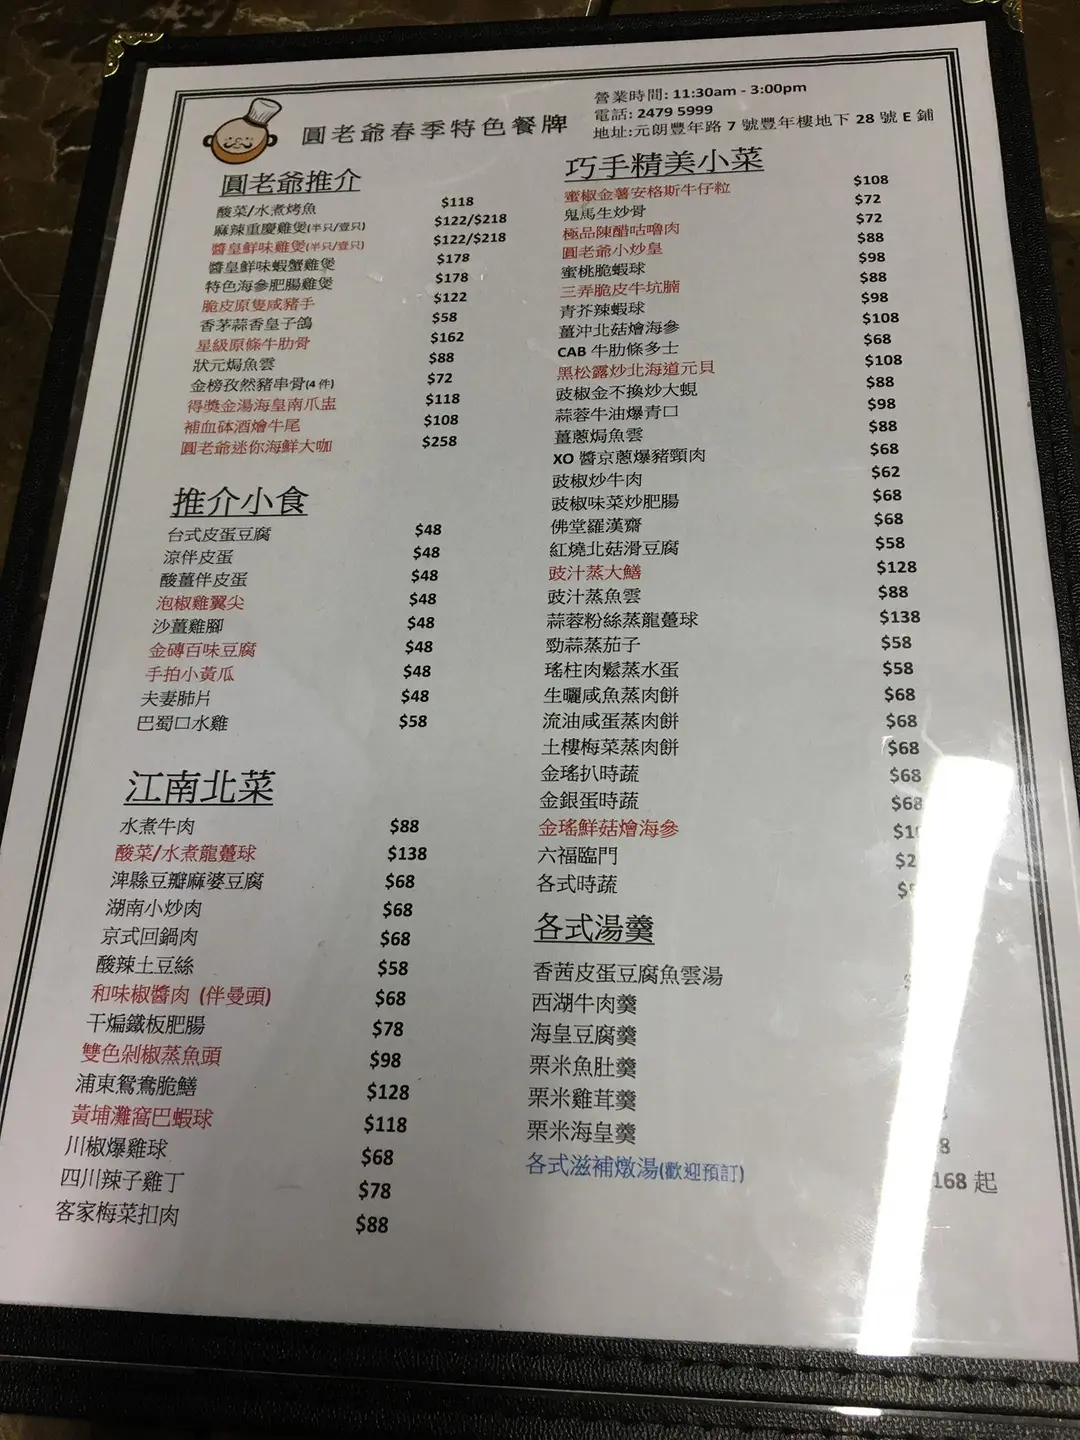 圓老爺春季特色餐牌
營業時間: 11:30am - 3:00pm
電話: 2479 5999
地址:元朗豐年路 7 號豐年樓地下 28 號 E 鋪
圓老爺推介
酸菜/水煮烤魚 $118
麻辣重慶雞煲(半只/壹只) $122/$218
醬皇鮮味雞煲(半只/壹只) $122/$218
醬皇鮮味蝦蟹雞煲 $178
特色海參肥腸雞煲 $178
脆皮原隻咸豬手 $122
香茅蒜香皇子鴿 $58
星級原條牛肋骨 $162
狀元焗魚雲 $88
金榜孜然豬串骨(4 件) $72
得獎金湯海皇南爪盅 $118
補血砵酒燴牛尾 $108
圓老爺迷你海鮮大咖 $258
推介小食
台式皮蛋豆腐 $48
涼伴皮蛋 $48
酸薑伴皮蛋 $48
泡椒雞翼尖 $48
沙薑雞腳 $48
金磚百味豆腐 $48
手拍小黃瓜 $48
夫妻肺片 $48
巴蜀口水雞 $58
江南北菜
水煮牛肉 $88
酸菜/水煮龍躉球 $138
渒縣豆瓣麻婆豆腐 $68
湖南小炒肉 $68
京式回鍋肉 $68
酸辣土豆絲 $58
和味椒醬肉 (伴曼頭) $68
干煸鐵板肥腸 $78
雙色剁椒蒸魚頭 $98
浦東鴛鴦脆鱔 $128
黃埔灘窩巴蝦球 $118
川椒爆雞球 $68
四川辣子雞丁 $78
客家梅菜扣肉 $88
巧手精美小菜
蜜椒金薯安格斯牛仔粒 $108
鬼馬生炒骨 $72
極品陳醋咕嚕肉 $72
圓老爺小炒皇 $88
蜜桃脆蝦球 $98
三弄脆皮牛坑腩 $88
青芥辣蝦球 $98
薑沖北菇燴海參 $108
CAB 牛肋條多士 $68
黑松露炒北海道元貝 $108
豉椒金不換炒大蜆 $88
蒜蓉牛油爆青口 $98
薑蔥焗魚雲 $88
XO 醬京蔥爆豬頸肉 $68
豉椒炒牛肉 $62
豉椒味菜炒肥腸 $68
佛堂羅漢齋 $68
紅燒北菇滑豆腐 $58
豉汁蒸大鱔 $128
豉汁蒸魚雲 $88
蒜蓉粉絲蒸龍躉球 $138
勁蒜蒸茄子 $58
瑤柱肉鬆蒸水蛋 $58
生曬咸魚蒸肉餅 $68
流油咸蛋蒸肉餅 $68
土樓梅菜蒸肉餅 $68
金瑤扒時蔬 $68
金銀蛋時蔬 $68
金瑤鮮菇燴海參
六福臨門
各式時蔬
各式湯羹
香茜皮蛋豆腐魚雲湯
西湖牛肉羹
海皇豆腐羹
栗米魚肚羹
栗米雞茸羹
栗米海皇羹
各式滋補燉湯(歡迎預訂) 168 起